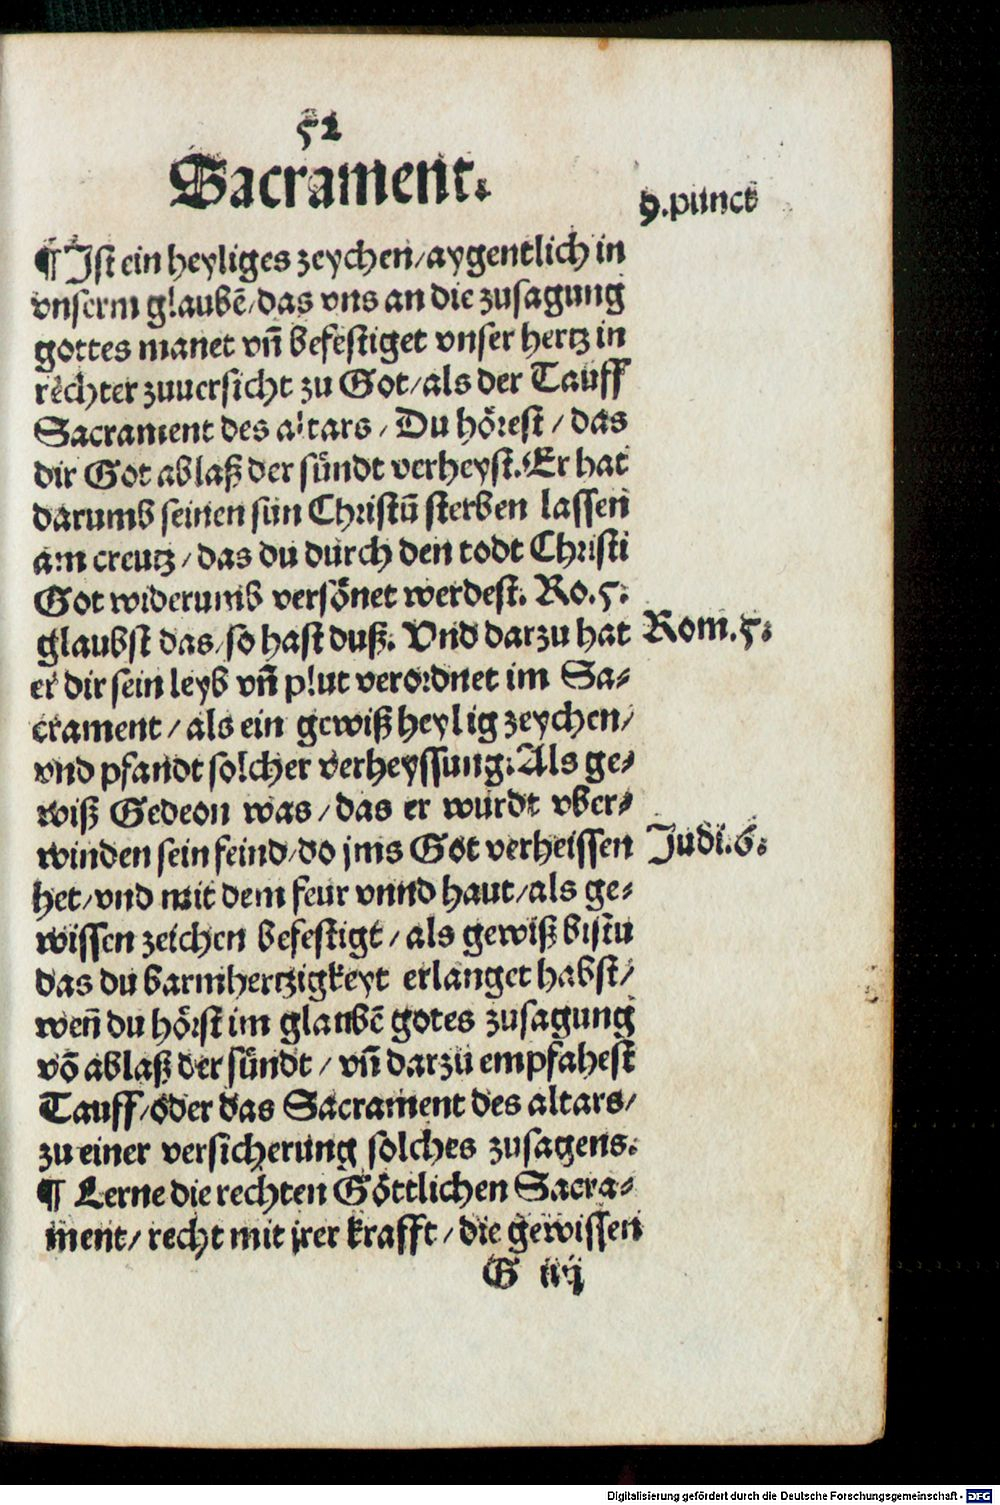 52
Sacrament.
9.punct
¶ Ist ein heyliges zeychen/aygentlich in
vnserm glaubē/das vns an die zusagung
gottes manet vñ befestiget vnser hertz in
rechter zuuersicht zu Got/als der Tauff
Sacrament des altars/Du hörest/das
dir Got ablaß der sündt verheyst. Er hat
darumb seinen sun Christū sterben lassen
am creutz/das du durch den todt Christi
Got widerumb versönet werdest. Ro.5.
glaubst das/so hast duß. Vnd darzu hat
Rom.5.
er dir sein leyb vñ plut verordnet im Sa-
crament/als ein gewiß heylig zeychen/
vnd pfandt solcher verheyssung. Als ge-
wiß Gedeon was/das er wurdt vber-
winden sein feind/do jms Got verheissen
Judi.6.
het/vnd mit dem feur vnnd haut/als ge-
wissen zeichen befestigt/als gewiß bistu
das du barmhertzigkeyt erlanget habst/
weñ du hörst im glaubē gotes zusagung
vō ablaß der sündt/vñ darzu empfahest
Tauff/oder das Sacrament des altars/
zu einer versicherung solches zusagens.
¶ Lerne die rechten Göttlichen Sacra-
ment/recht mit jrer krafft/die gewissen
G iiij
Digitalisierung gefördert durch die Deutsche Forschungsgemeinschaft - DFG